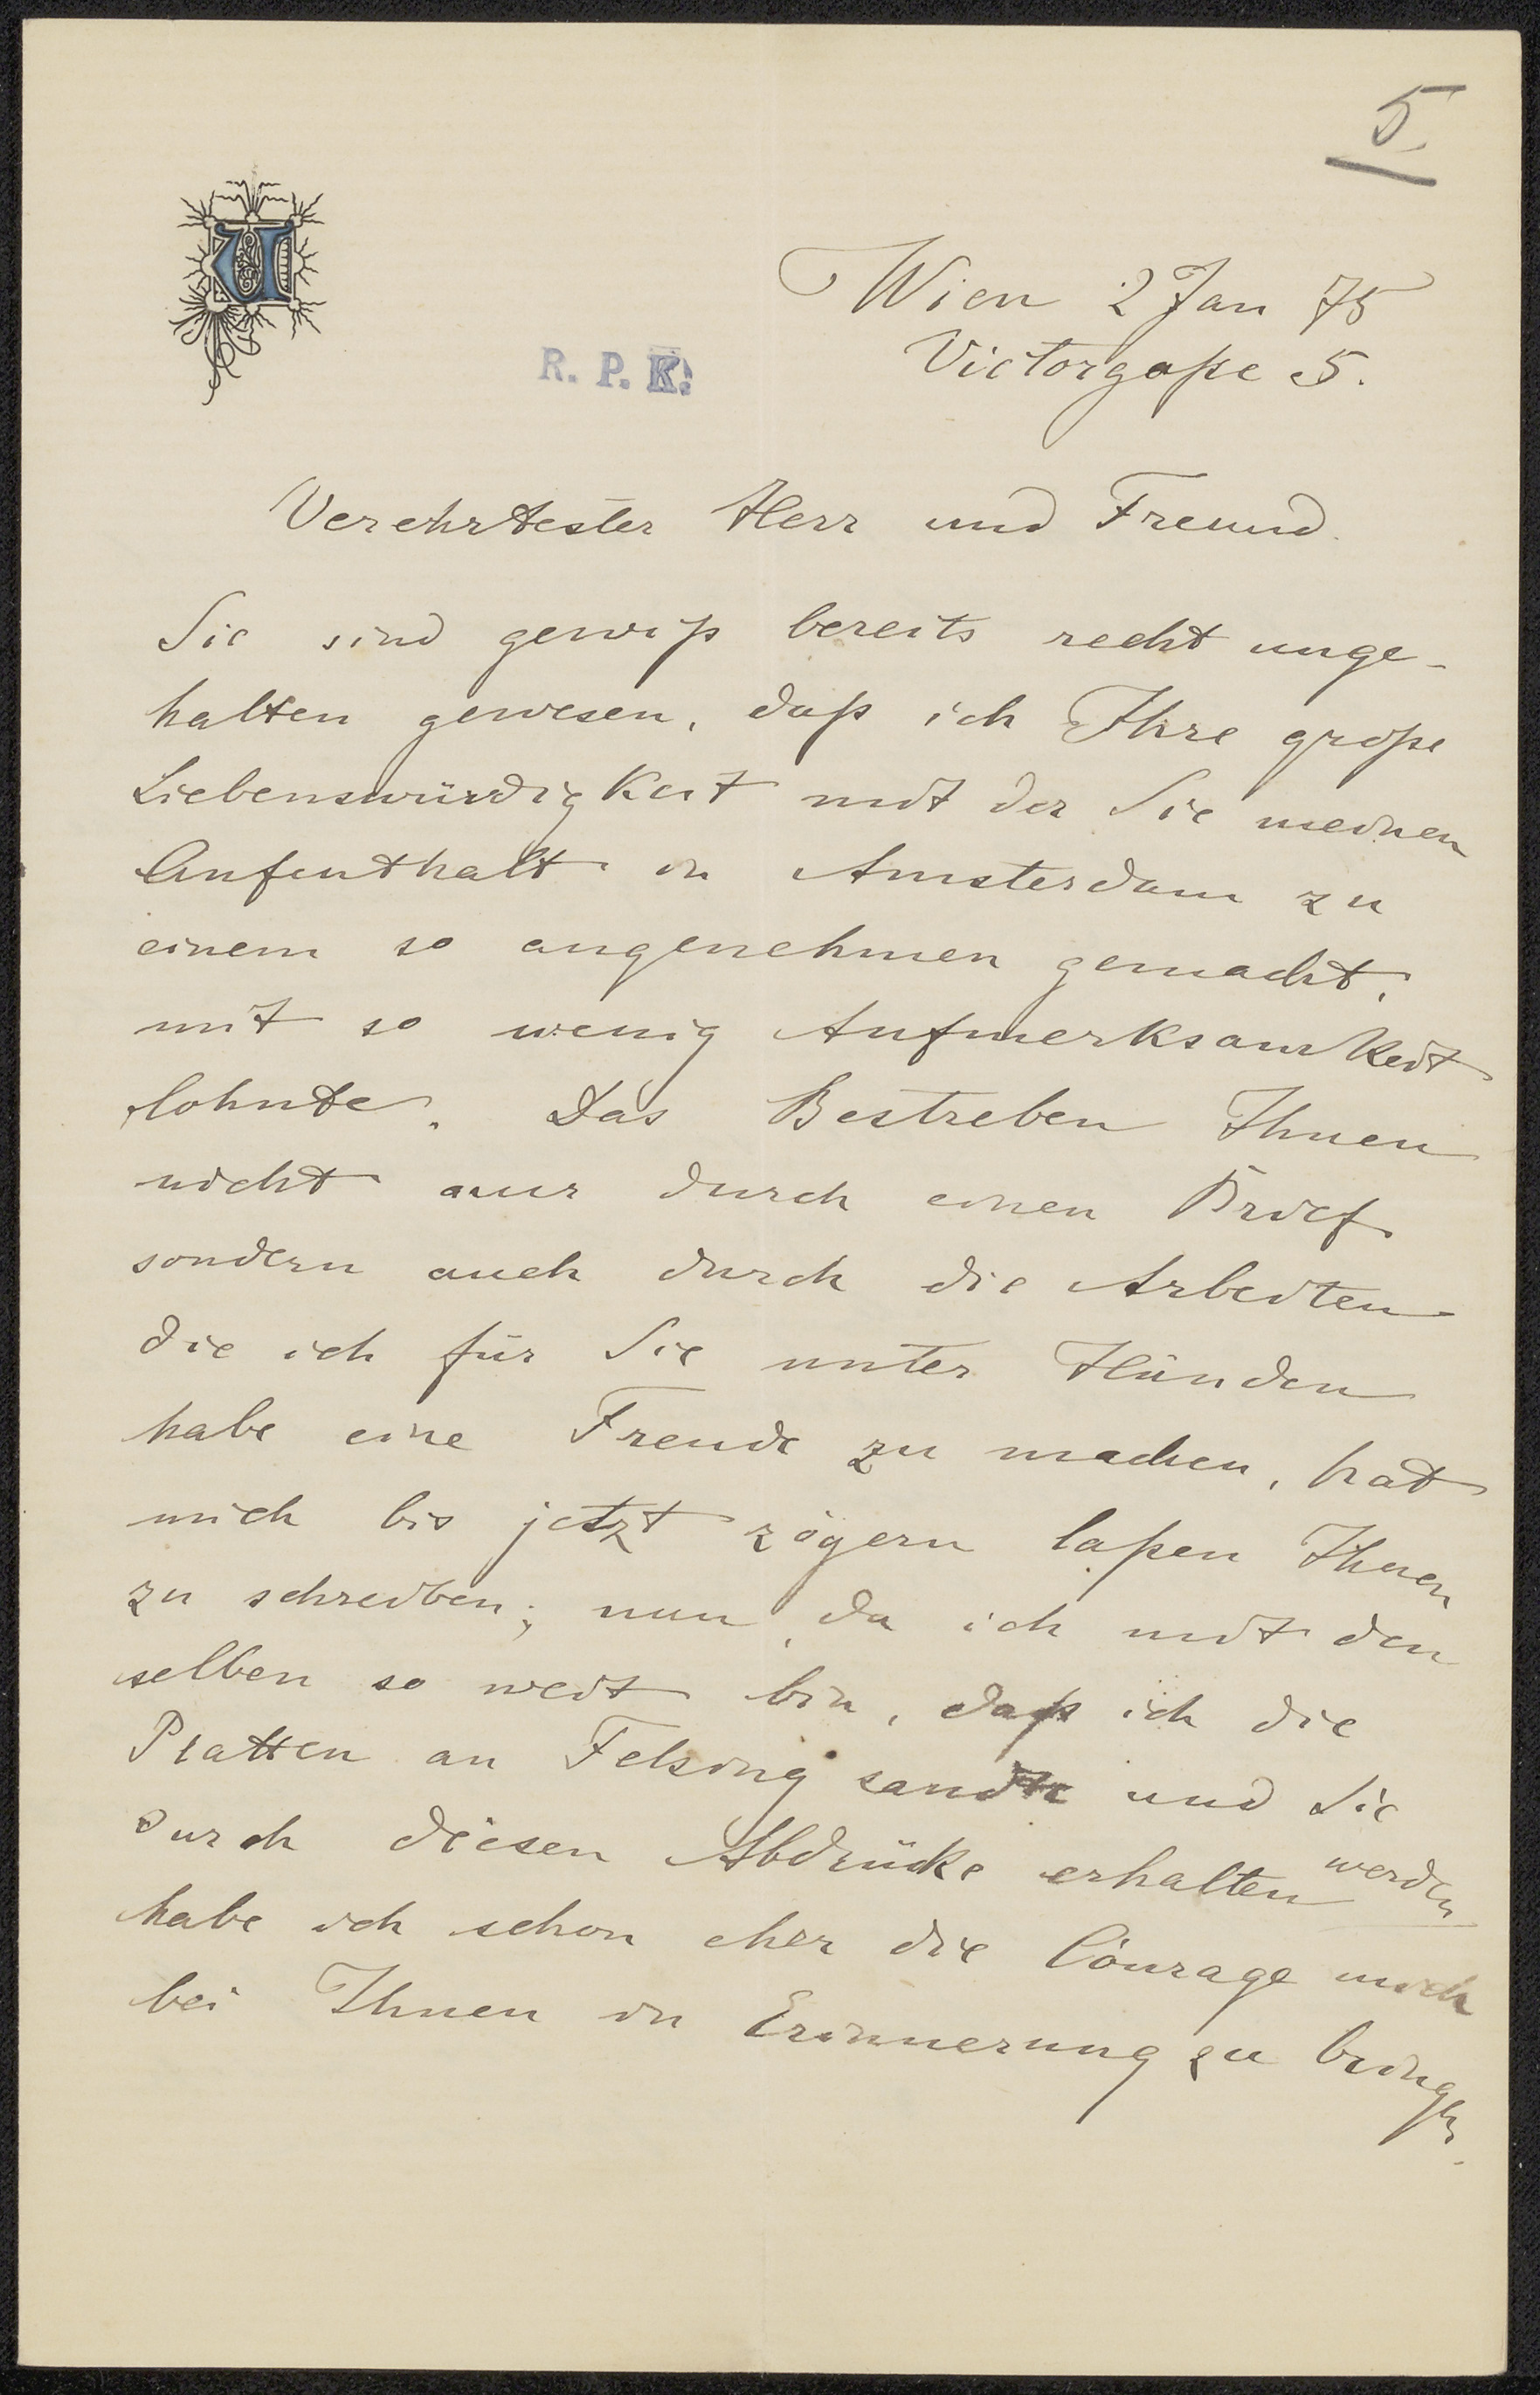 5.
U
Wien 2 Jan 75
R. P. K.
Victorgaße 5.
Verehrtester Herr und Freund.
Sie sind gewiß bereits recht unge-
halten gewesen, daß ich Ihre große
Liebenswürdigkeit mit der Sie meinen
Aufenthalt in Amsterdam zu
einem so angenehmen gemacht,
mit so wenig Aufmerksamkeit
lohnte. Das Bestreben Ihnen
nicht nur durch einen Brief
sondern auch durch die Arbeiten
die ich für Sie unter Händen
habe eine Freude zu machen, hat
mich bis jetzt zögern laßen Ihnen
zu schreiben; nun, da ich mit den
selben so weit bin, daß ich die
Platten an Felsing sandte und Sie
durch diesen Abdrücke erhalten werden
habe ich schon eher die Courage mich
bei Ihnen in Erinnerung zu bringen.